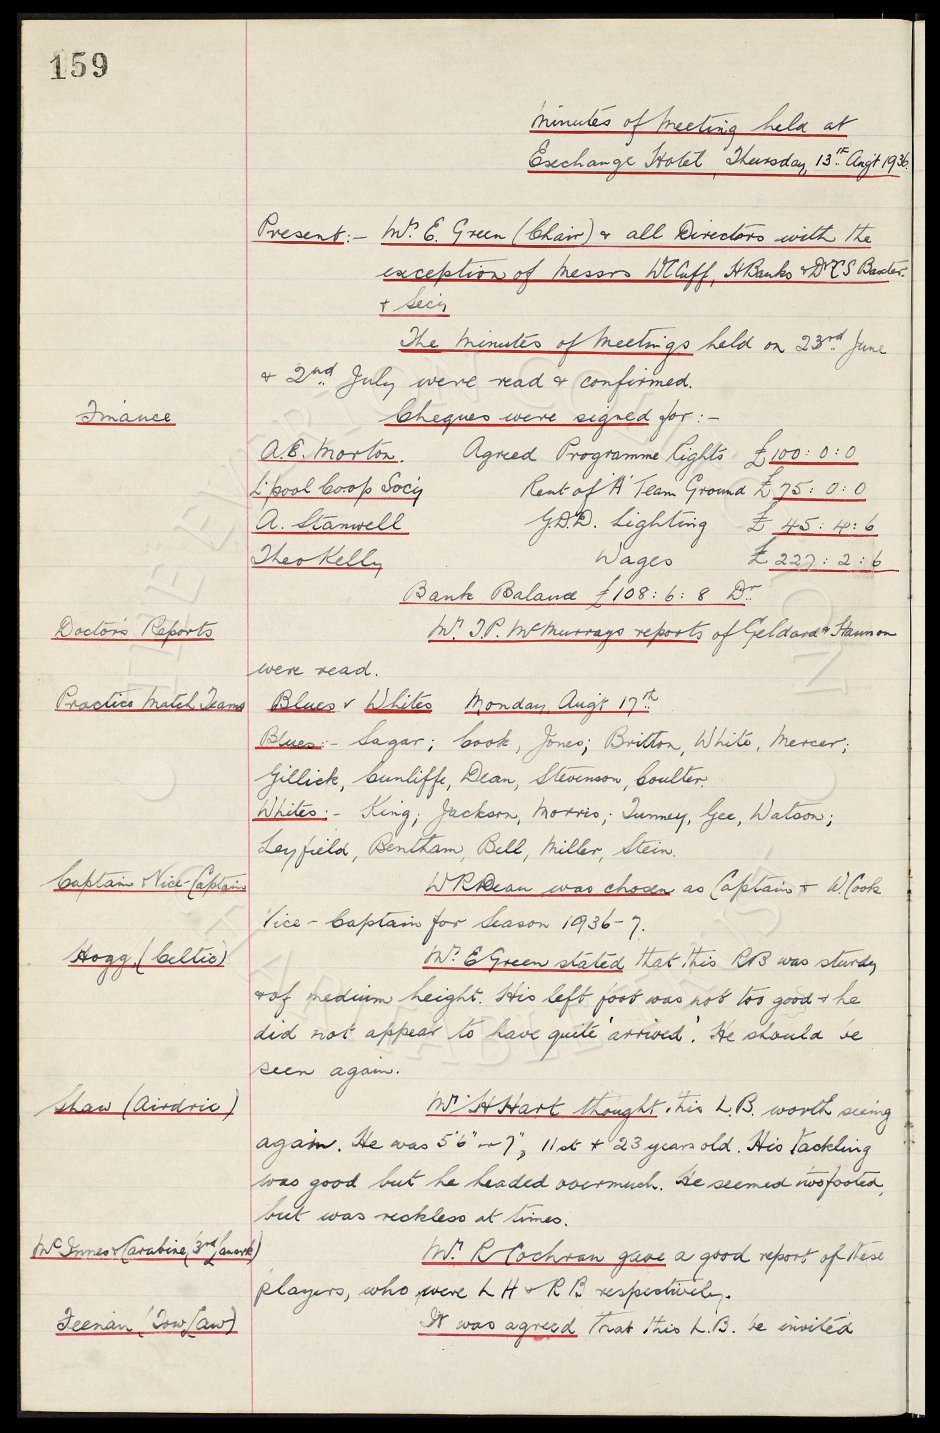 159
Minutes of Meeting held at
Exchange Hotel, Thursday, 13th Aug't 1936.
Present:- Mr. E. Green (Chair) & all Directors with the
exception of Messrs W C Cuff, H Banks & Dr C S Baxter.
& Secy
The Minutes of Meetings held on 23rd June
& 2nd July were read & confirmed.
Finance Cheques were signed for:-
A.E. Morton. Agreed Programme Rights £100:0:0
L'pool Coop Socy Rent of 'A' Team Ground £75:0:0
A. Stanwell G.D.D. Lighting £45:4:6
Theo Kelly Wages £227:2:6
Bank Balance £108:6:8 Dr.
Doctor's Reports Mr. J.P. McMurrays reports of Geldard & Hannon
were read.
Practice Match Teams Blues v Whites Monday Aug't 17th
Blues:- Sagar; Cook, Jones; Britton, White, Mercer;
Gillick, Cunliffe, Dean, Stevenson, Coulter.
Whites:- King; Jackson, Morris; Tunney, Gee, Watson;
Leyfield, Bentham, Bell, Miller, Stein.
Captain & Vice-Captain W R Dean was chosen as Captain & W. Cook
Vice-Captain for Season 1936-7.
Hogg, (Celtic) Mr. E Green stated that this R B was sturdy
& of medium height. His left foot was not too good & he
did not appear to have quite 'arrived'. He should be
seen again.
Shaw (Airdrie) Mr. H Hart thought this L.B. worth seeing
again. He was 5'6" or 7", 11st & 23 years old. His tackling
was good but he headed overmuch. He seemed twofooted,
but was reckless at times.
McInnes & Carabine, (3rd Lanark) Mr. R Cochran gave a good report of these
players, who were L H & R B respectively.
Feenan (Tow Law) It was agreed that this L.B. be invited